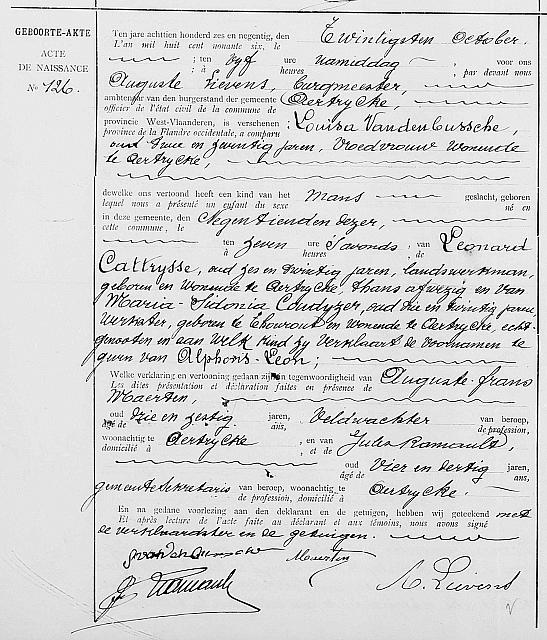 GEBOORTE-AKTE
ACTE
DE NAISSANCE
No 126.
Ten jare achttien honderd zes en negentig, den Twintigsten October.
L'an mil huit cent nonante six, le
; ten vyf ure namiddag voor ons
à heures par devant nous
Auguste Lievens, burgmeester,
ambtenaar van den burgerstand der gemeente Aertrycke,
officier de l'état civil de la commune de
provincie West-Vlaanderen, is verschenen : Louisa Vandenbussche,
province de la Flandre occidentale, a comparu
oud twee en zewintig jaren, vroedvrouw wonende
te Aertrycke,
dewelke ons vertoond heeft een kind van het mans geslacht, geboren
lequel nous a présenté un enfant du sexe né en
in deze gemeente, den Negentienden dezer,
cette commune, le
ten zeven ure 's avonds, van Leonard
à heures de
Cattrysse, oud zes en twintig jaren, landswerkman,
geboren en wonende te Aertrycke, thans afwezig en van
Maria-Sidonia Coudyzer, oud drie en twintig jaren,
werkster, geboren te Thourout en wonende te Aertrycke, echt-
genooten en aan welk kind zy verklaart de voornamen te
geven van Alphons-Leon;
Welke verklaring en vertooning gedaan zijn in tegenwoordigheid van Auguste-frans
Les dites présentation et déclaration faites en présence de
Maerten,
oud drie en zestig jaren, Veldwachter van beroep,
âgé de ans, de profession,
woonachtig te Aertrycke, en van Jules Ramault,
domicilié à et de
oud vier en dertig jaren,
âgé de ans,
gemeente Sekretaris van beroep, woonachtig te Aertrycke.
de profession, domicilié à
En na gedane voorlezing aan den deklarant en de getuigen, hebben wij geteekend met
Et après lecture de l'acte faite au déclarant et aux témoins, nous avons signé
de verklaardster en de getuigen.
Maerten
Ramault
A. Lievens